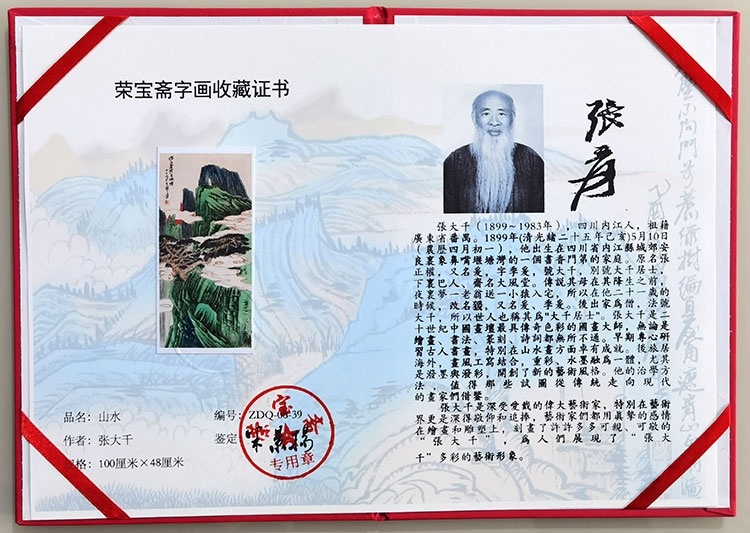 荣宝斋字画收藏证书
品名：山水
编号：ZDQ-0
39
作者：张大千
鉴定
规格：100厘米×48厘米
专用章
張爰
張大千（1899~1983年），四川内江人，祖籍
廣東省番禺。1899年(清光緒二十五年己亥)5月10日
（農歷四月初一），他出生在四川省内江縣城郊安
良裏象鼻嘴堰塘灣的一個書香門第的家庭。原名张
正權，又名爰，字季爰，號大千，別號大千居士，
下裏巴人，齋名大風堂。傳説其母在其降生之前，
夜裏夢一老翁送一小猿入宅，所以在他二十一歲的
時候，改名猨，又名爰、季爰。後出家爲僧，法號
大千，所以世人也稱其爲"大千居士"。張大千是二
十世紀中國畫壇最具傳奇色彩的國畫大師，無論是
繪畫、書法、篆刻、詩詞都無所不通。早期專心研
習古人書畫，特別在山水畫方面卓有成就。後旅居
海外，畫風工寫結合，重彩、水墨融爲一體，尤其
是潑墨與潑彩，開創了新的藝術風格。他的治學方
法，值得那些試圖從傳統走向現代
的畫家們借鑒。
張大千是深受愛戴的偉大藝術家，特别在藝術
界更是深得敬仰和追捧，藝術家們都用真摯的感情
在繪畫和雕塑上，刻畫了許許多多可親、可敬的
"張大千"，爲人們展現了"張大
千"多彩的藝術形象。